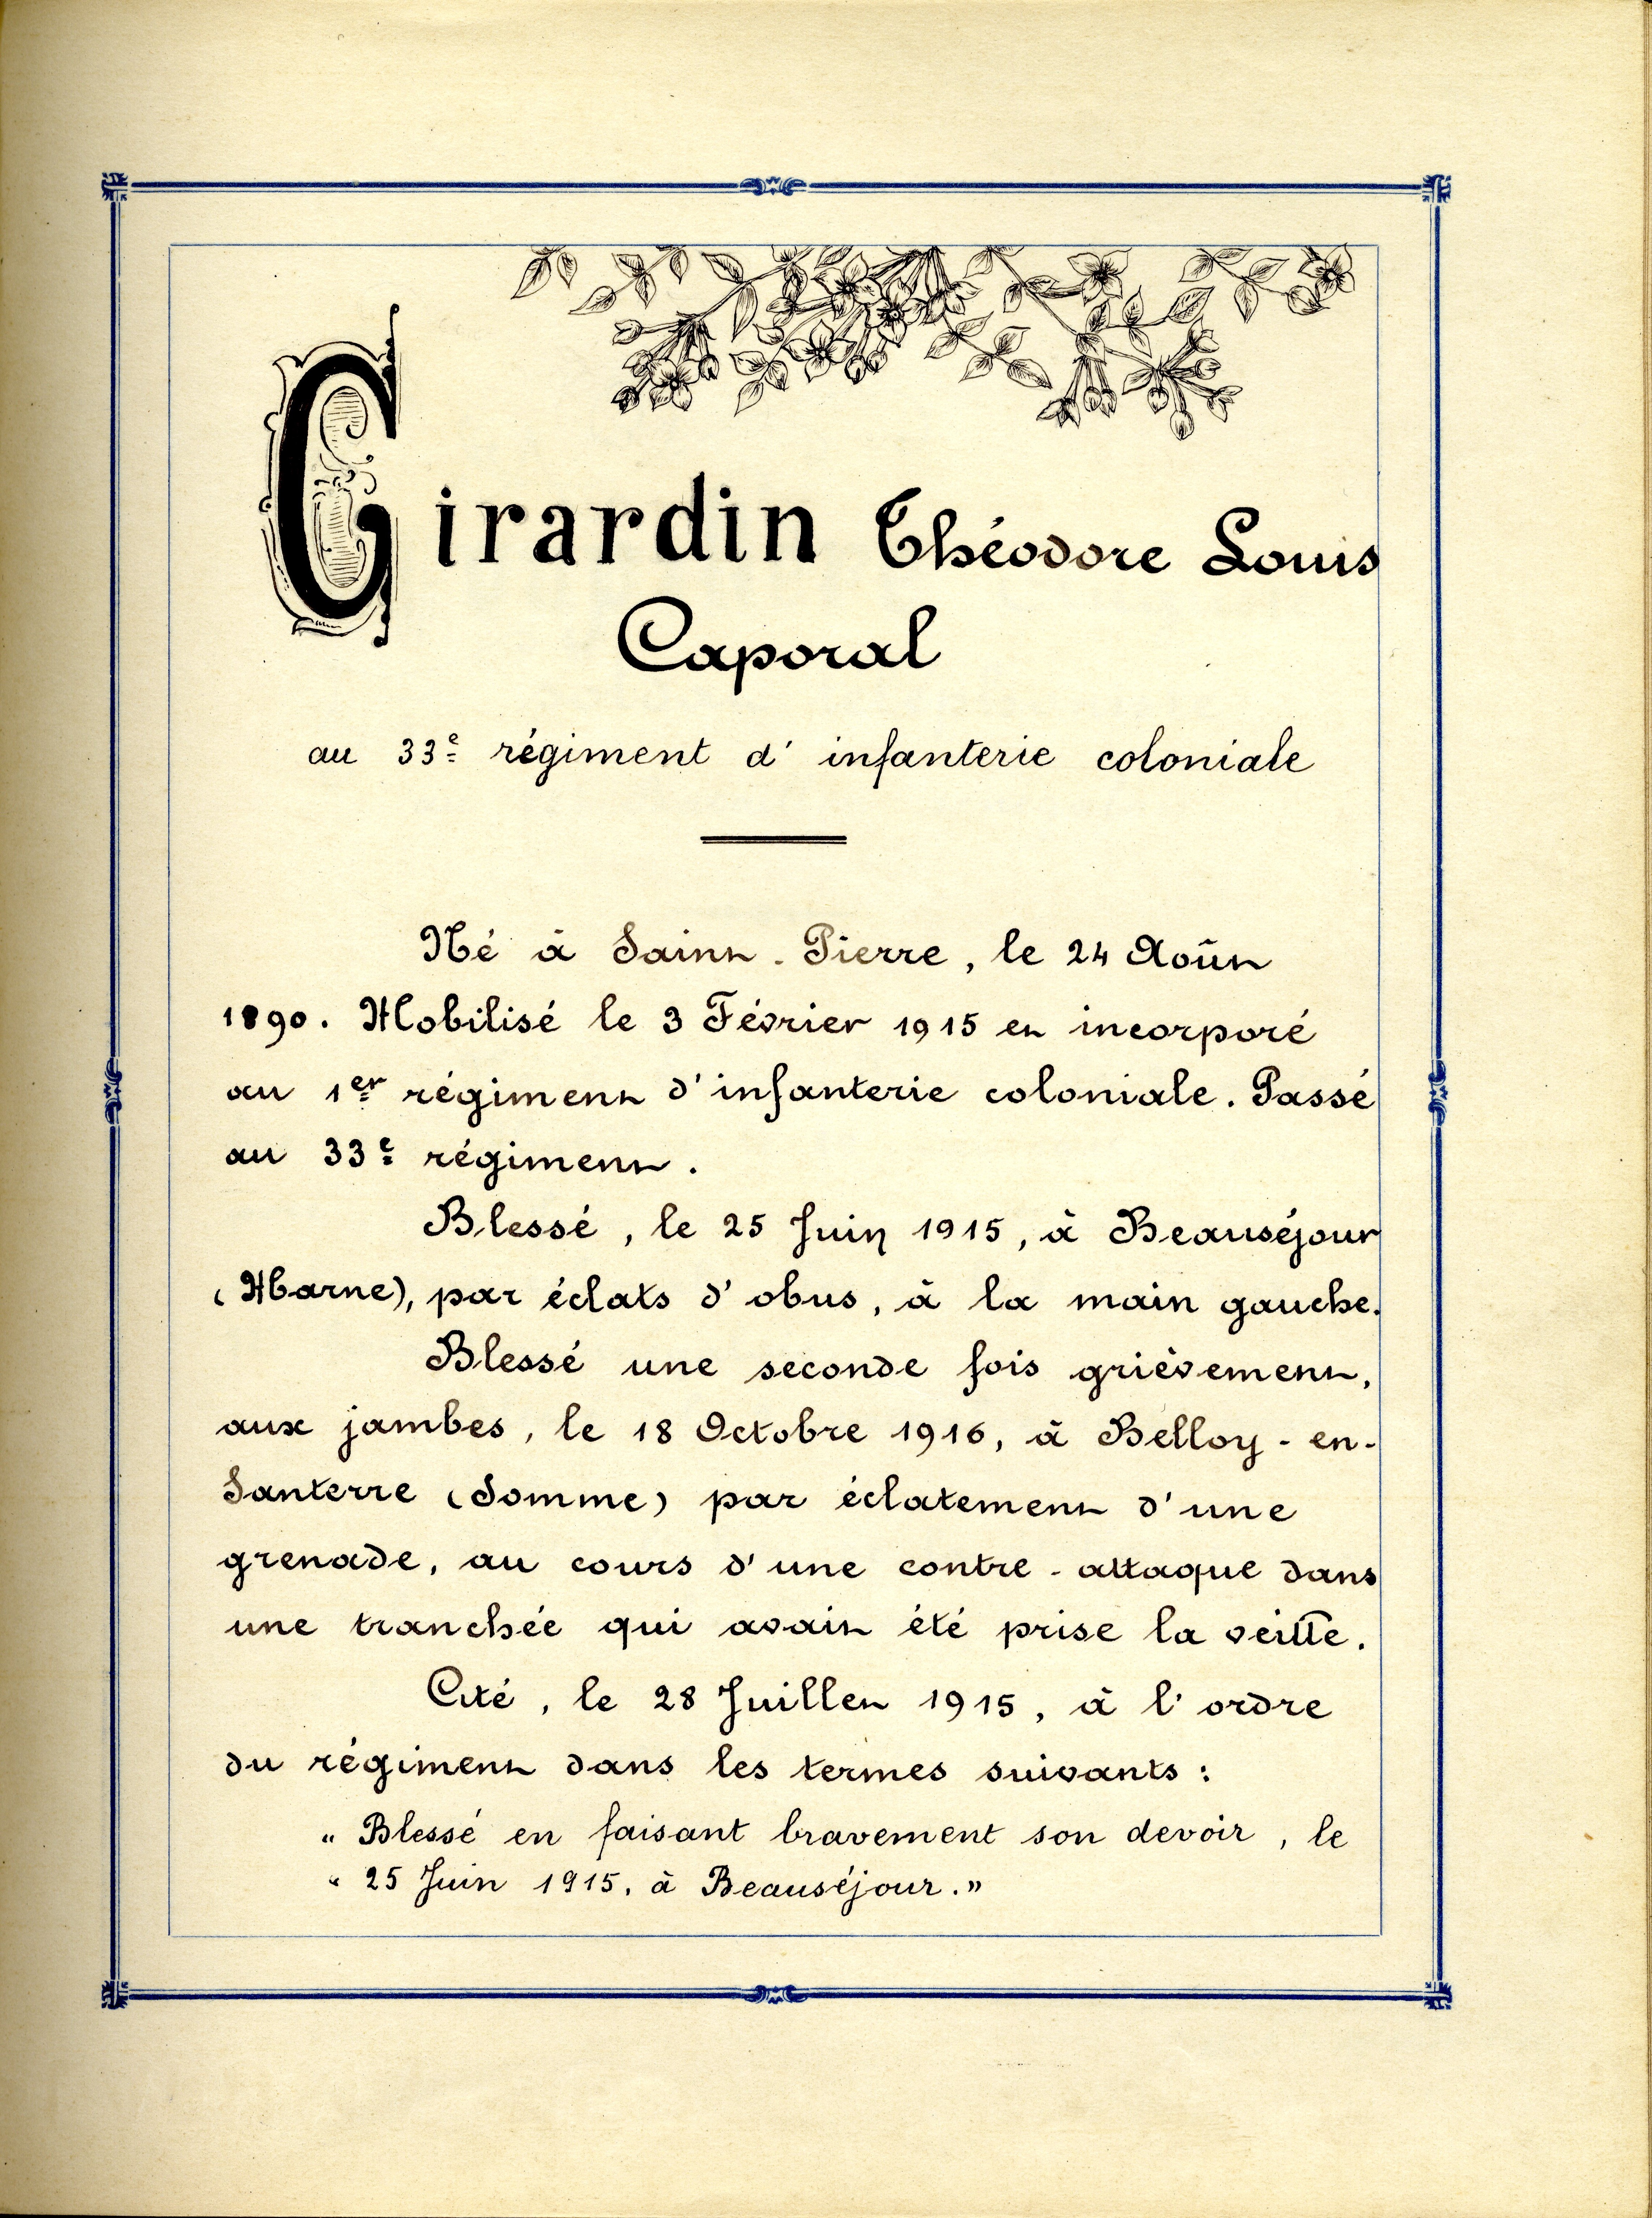 Girardin Théodore Louis
Caporal
au 33e régiment d' infanterie coloniale
Né à Saint-Pierre, le 24 Août
1890. Mobilisé le 3 Février 1915 et incorporé
au 1er régiment d'infanterie coloniale. Passé
au 33e régiment.
Blessé, le 25 Juin 1915, à Beauséjour
(Marne), par éclats d'obus, à la main gauche.
Blessé une seconde fois grièvement,
aux jambes, le 18 Octobre 1916, à Belloy-en-
Santerre (Somme) par éclatement d'une
grenade, au cours d'une contre-attaque dans
une tranchée qui avait été prise la veille.
Cité, le 28 Juillet 1915, à l'ordre
du régiment dans les termes suivants :
" Blessé en faisant bravement son devoir, le
" 25 Juin 1915, à Beauséjour. "